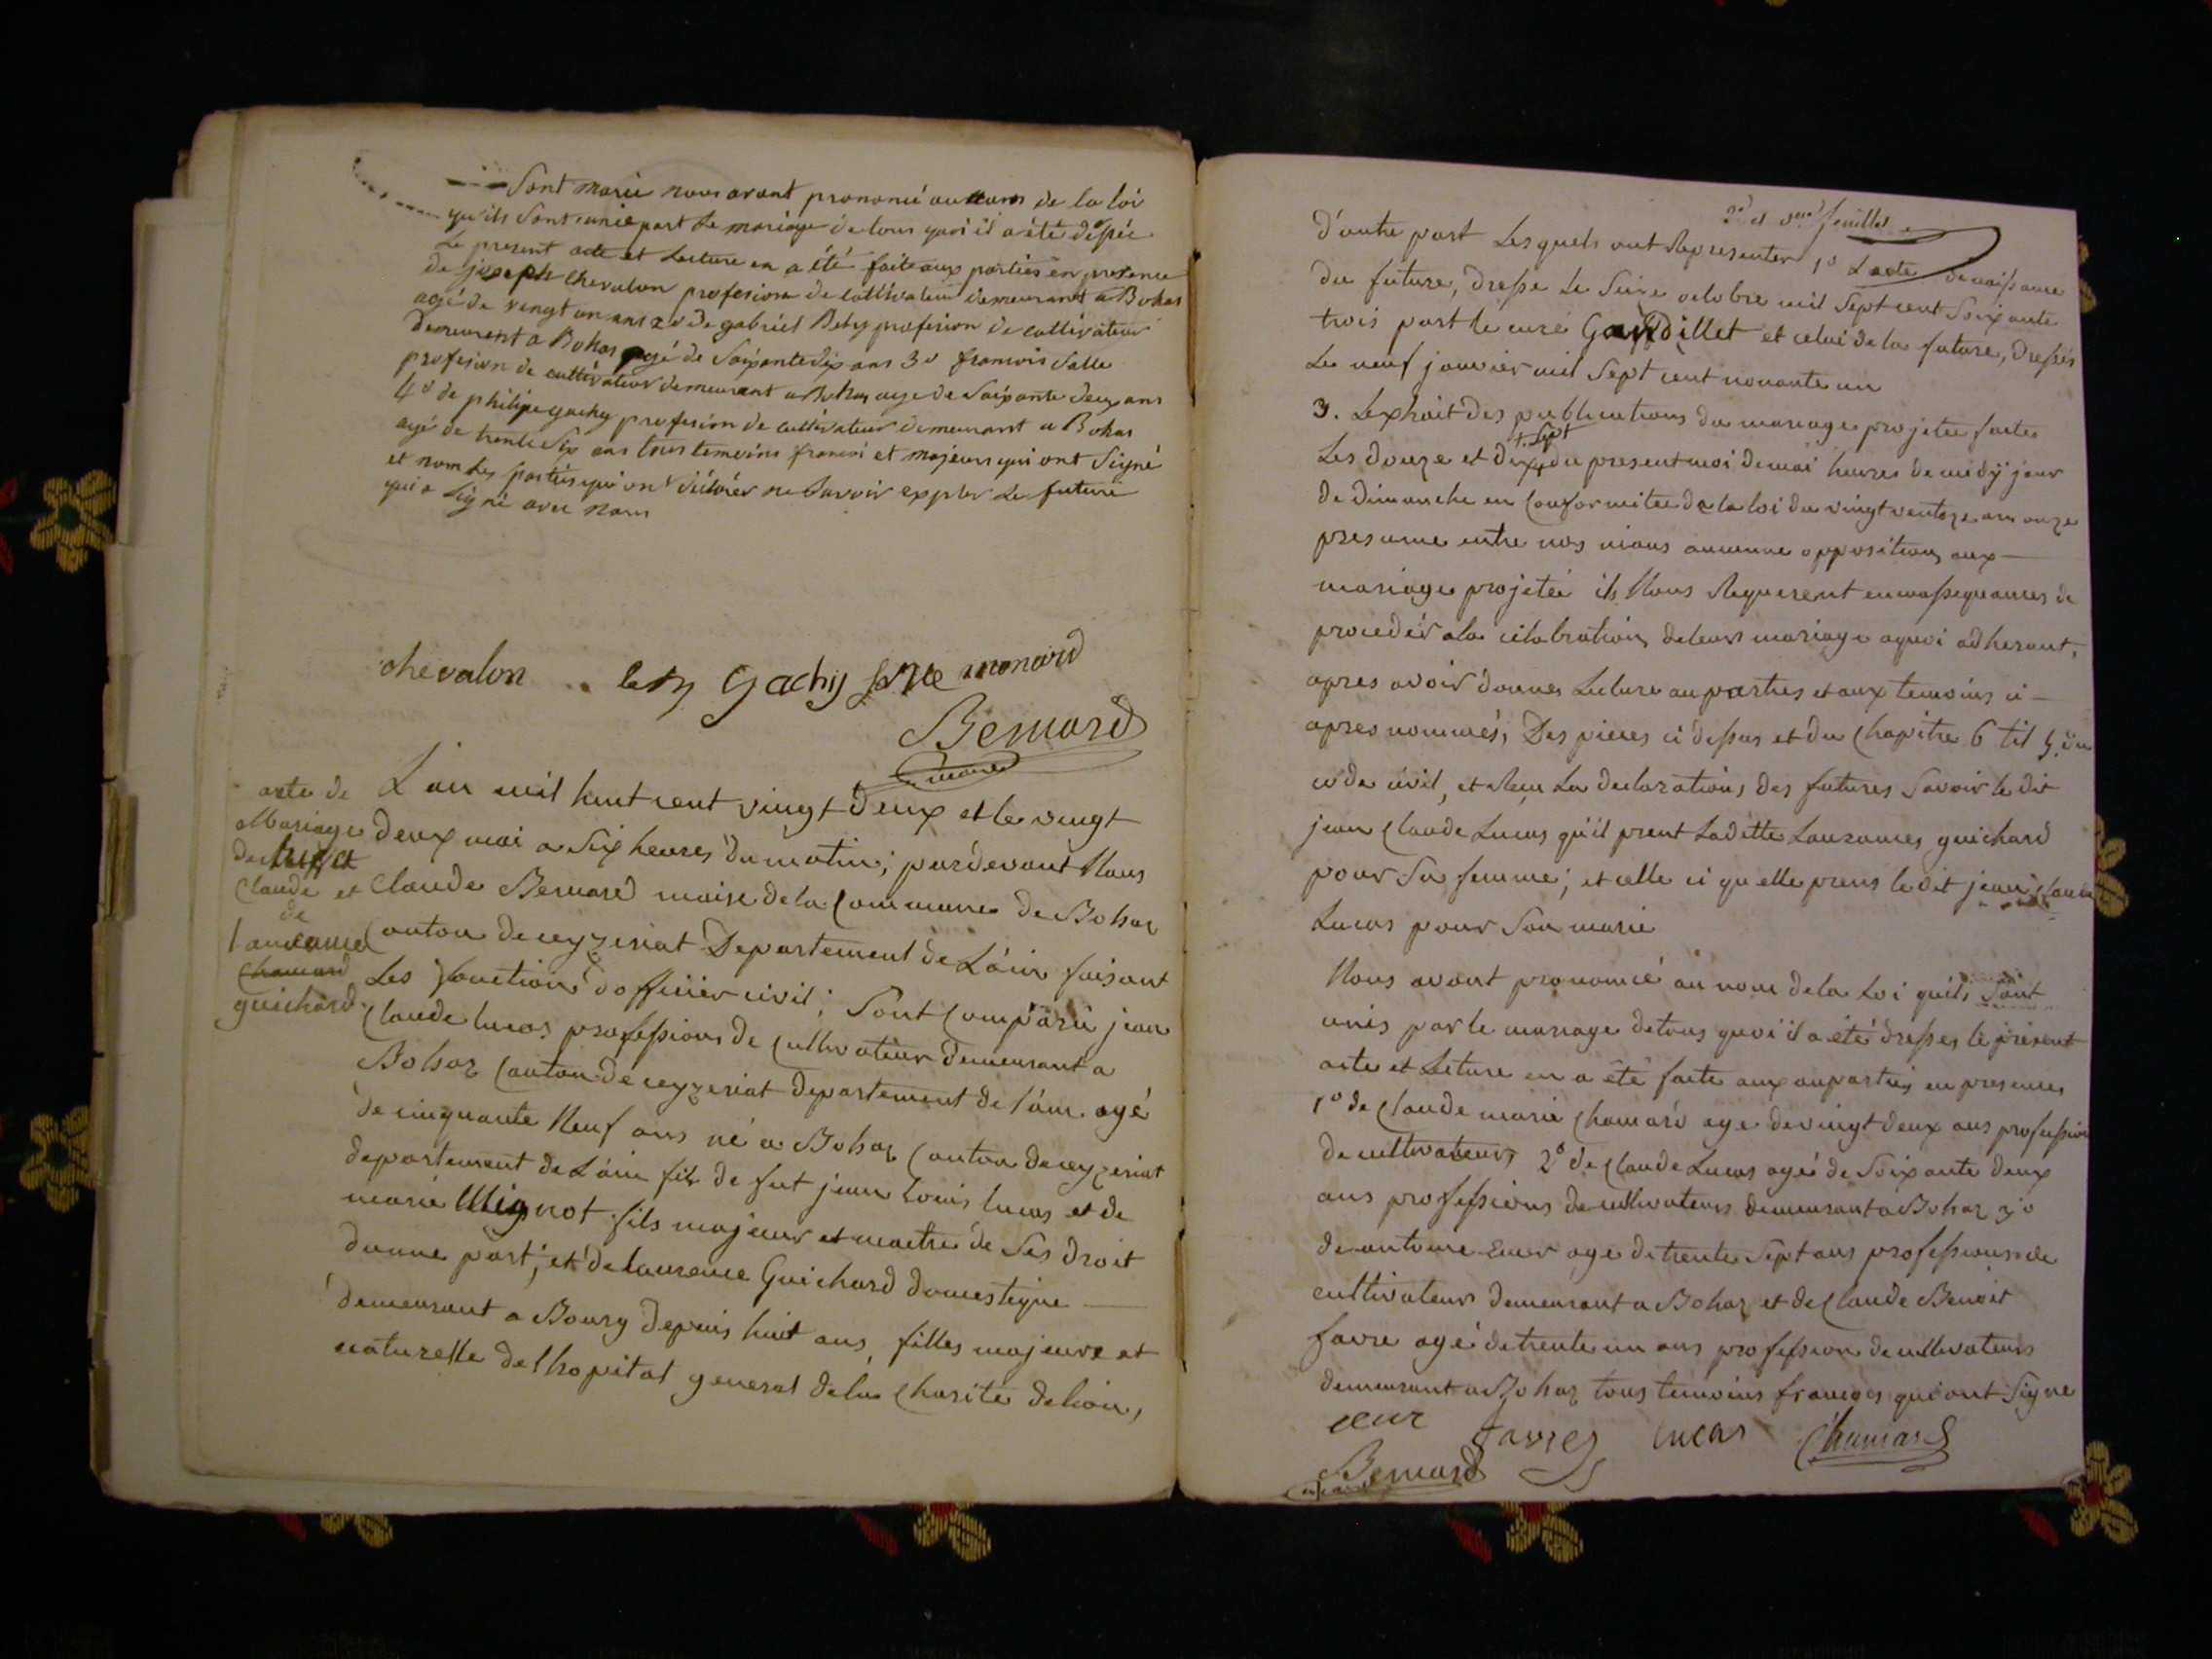 Sont marié nous avont prononcé au nom de la loi
qu'ils Sont unie part Le mariage de tous quoi il a été dressée
Le present acte et Lecture en a été faite aux parties en presence
de joseph chevalon profesion de cultivateur demeurant a Bohas
agé de vingt un ans 2º de gabriel Bely profesion de cultivateur
demeurent a Bohas agé de Soixante dix ans 3º francois Salle
profesion de cultivateur demeurant a Bohas age de Soixante deux ans
4º de philipe gachy profesion de cultivateur demeurant a Bohas
agé de trente Six ans tous temoins francoi et majeurs qui ont Signé
et nom Les parties qui on déclarér ne Savoir expter Le future
qui a Signé avec nous
chevalon gachy monard
Bernard
maire
acte de
Mariage
de lucas
Claude et
de
Laurance
Chamard
guichard
L'an mil huit cent vingt deux et le vingt
deux mai a Six heures du matin; pardevant Nous
Claude Bernard maire de la Commune de Bohaz
Canton de ceyzeriat Departement de L'ain faisant
Les fonctions d'officier civil; Sont Comparu jean
Claude lucas professions de Cultivateur demeurant a
Bohaz Canton de ceyzeriat departement de l'ain. agé
de cinquante Neuf ans né a Bohaz Canton de ceyzeriat
departement de L'ain fils de fut jean Louis lucas et de
marie Mignot fils majeur et maitre de Ses droit
dunne part; et de laurence Guichard domestique
demeurant a Bourg depuis huit ans, filles majeure et
naturelle de l'hopital general de la Charité de lion,
2d et dernier feuillet
d'autre part Lesquels ont Representer 1º L'acte de naissance
du future, dresse Le Seize octobre mil Sept cent Soixante
trois part le curé Gardillet et celui de la future, dressés
Le neuf janvier mil Sept cent nonante un
3. Lextrait des publications du mariage projetée faites
t. Sept
Les douze et dix du present moi de mai heures de midy jour
de dimanche en Conformitée de la loi du vingt ventoze an onze
presume entre nos mains aucunne opposition aux
mariage projetée ils Nous Requerent en consequances de
proceder a la célabration de leurs mariage aquoi adherant,
apres avoir donner Lecture au parties et aux temoins ci
apres nommés, Des pieces ci dessus et du Chapitre 6 tit 5. du
code civil, et Reçu La declarations des futures Savoir le dit
jean Claude Lucas qu'il prent Ladette Lauzances guichard
pour Sa femme; et celle ci qu elle prens le dit jean Claude
Lucas pour Son marie
Nous avont prononcé au nom de la Loi quils Sont
unis par le mariage de tous quoi il a été dresser le présent
acte et Leture en a été faite aux auparties en presences
1º de Claude marie Chamard age de vingt deux ans profession
de cultivateurs 2º de Claude Lucas agé de Soixante deux
ans professions de cultivateurs demeurant a Bohaz 3º
de antoine Cuer age de trente Sept ans professions de
cultivateurs demeurant a Bohaz et de Claude Benoit
favre agé de trente un ans profession de cultivateurs
demeurant a Bohaz tous temoins francois qui ont Signe
cuer favre Lucas Chamard
Bernard